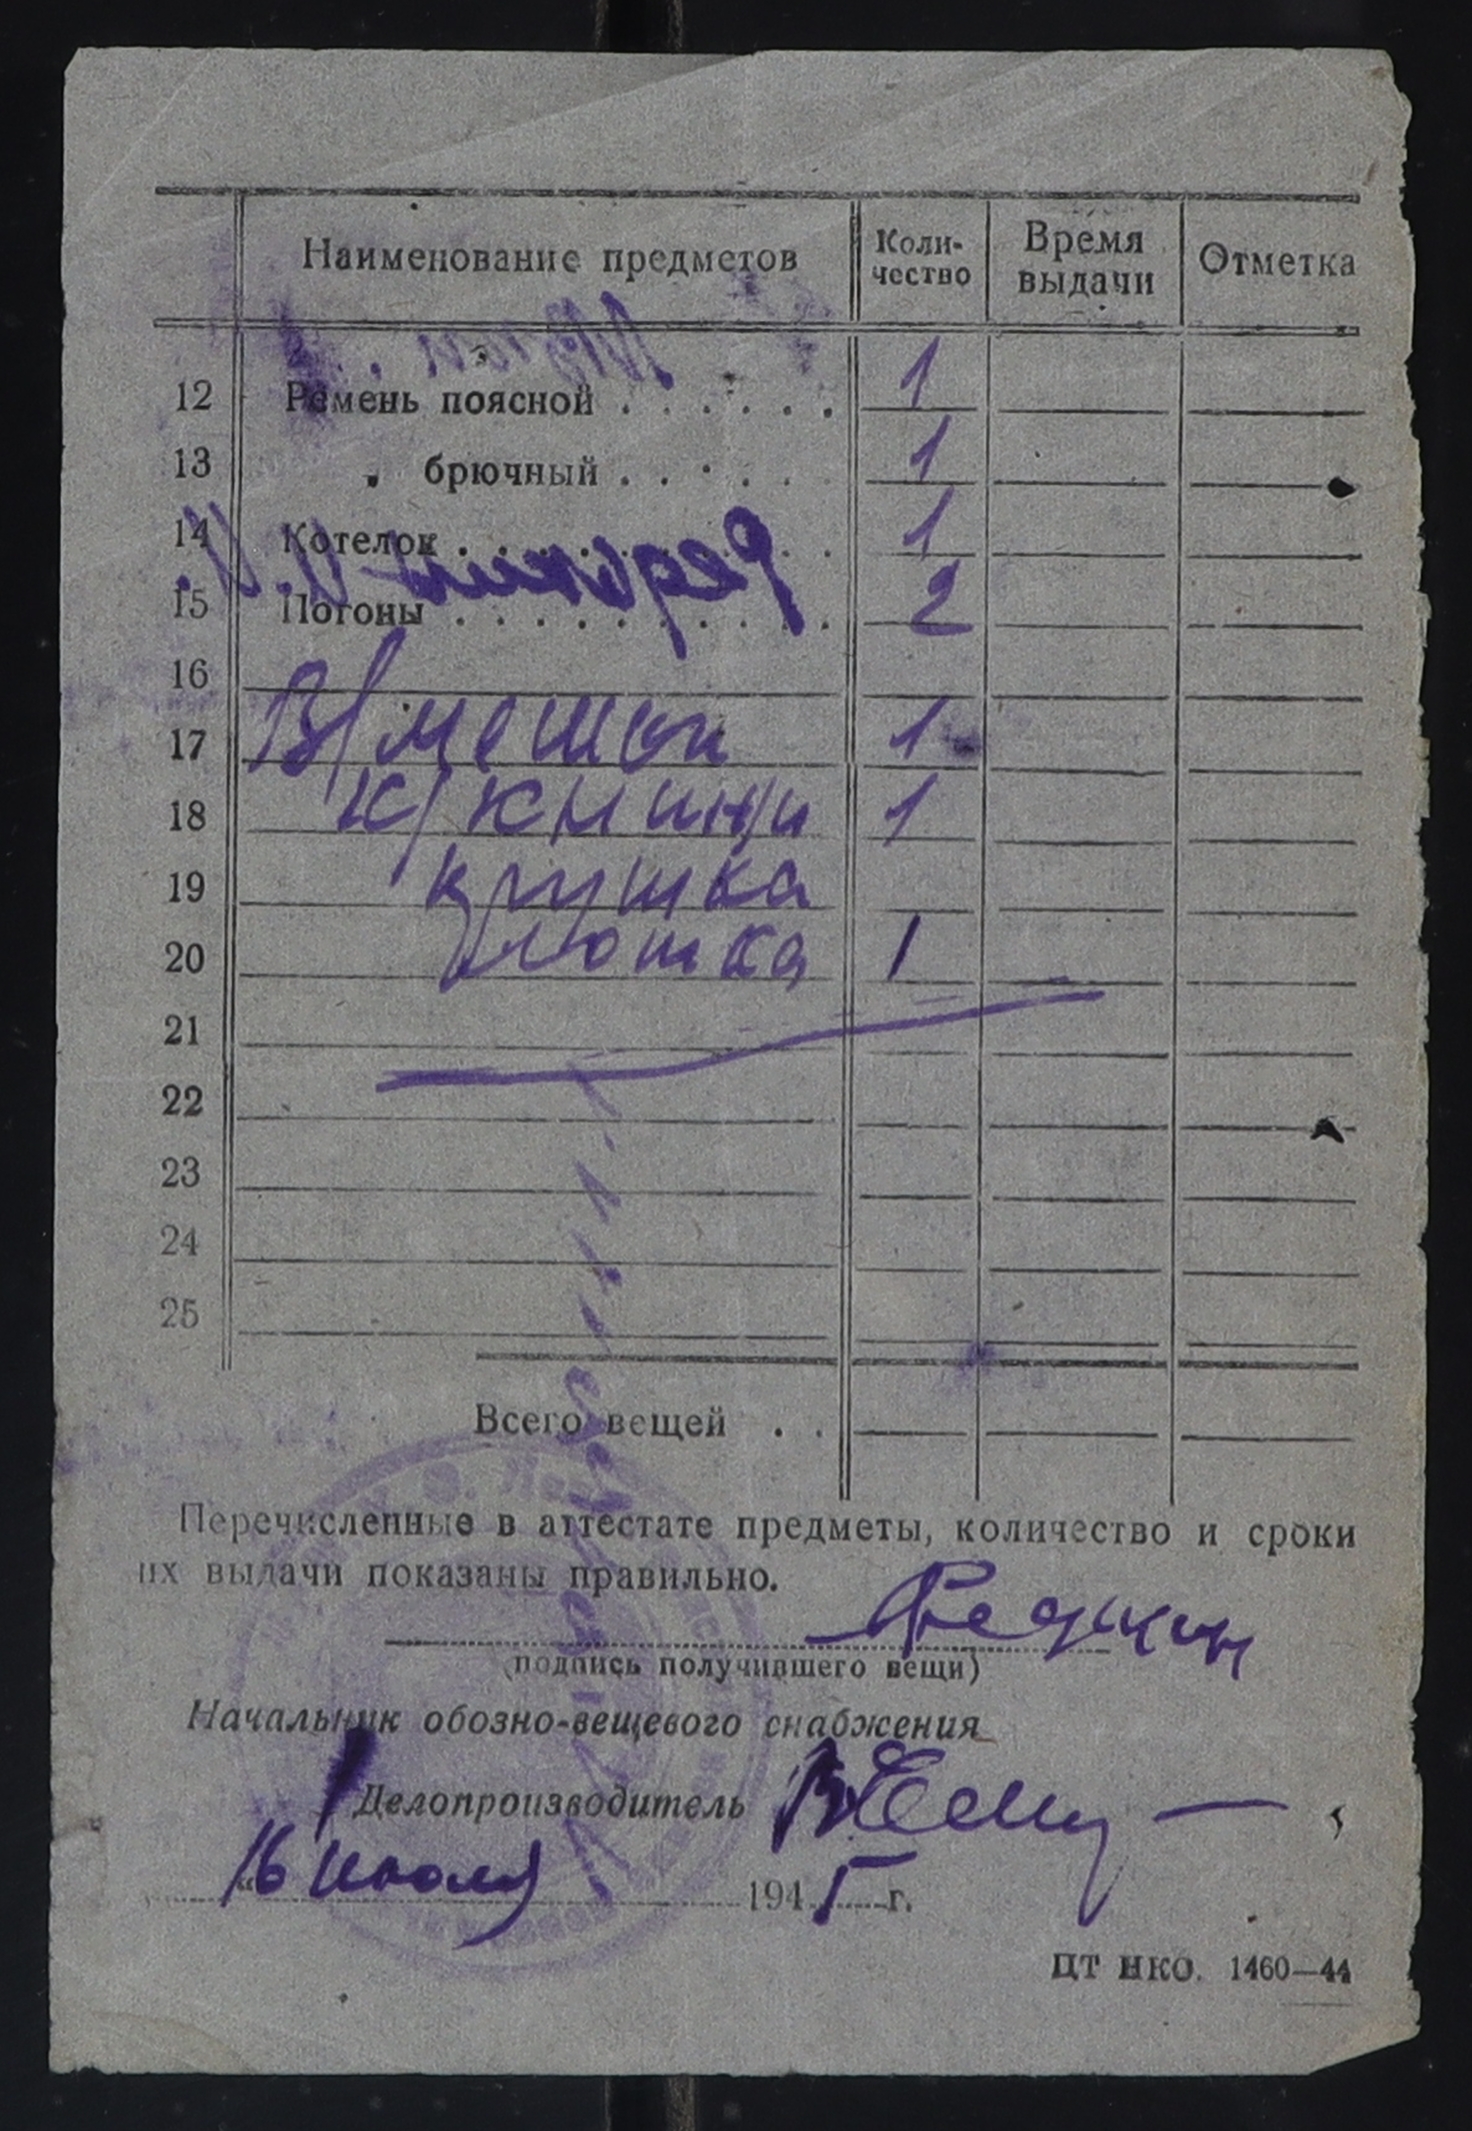 Наименование предметов Коли-чество Время выдачи Отметка
12 Ремень поясной . . . . . . 1
13 „ брючный . . . . . 1
14 Котелок . . . . . . . . . 1
15 Погоны . . . . . . . . . . 2
16
17 В/мешок 1
18 К/книжки 1
19 кружка
20 ложка 1
21
22
23
24
25
Всего вещей . .
Перечисленные в аттестате предметы, количество и сроки
их выдачи показаны правильно.
Редькин
(подпись получившего вещи)
Начальник обозно-вещевого снабжения
Делопроизводитель
„16 июля 1945 г.
ЦТ НКО. 1460—44